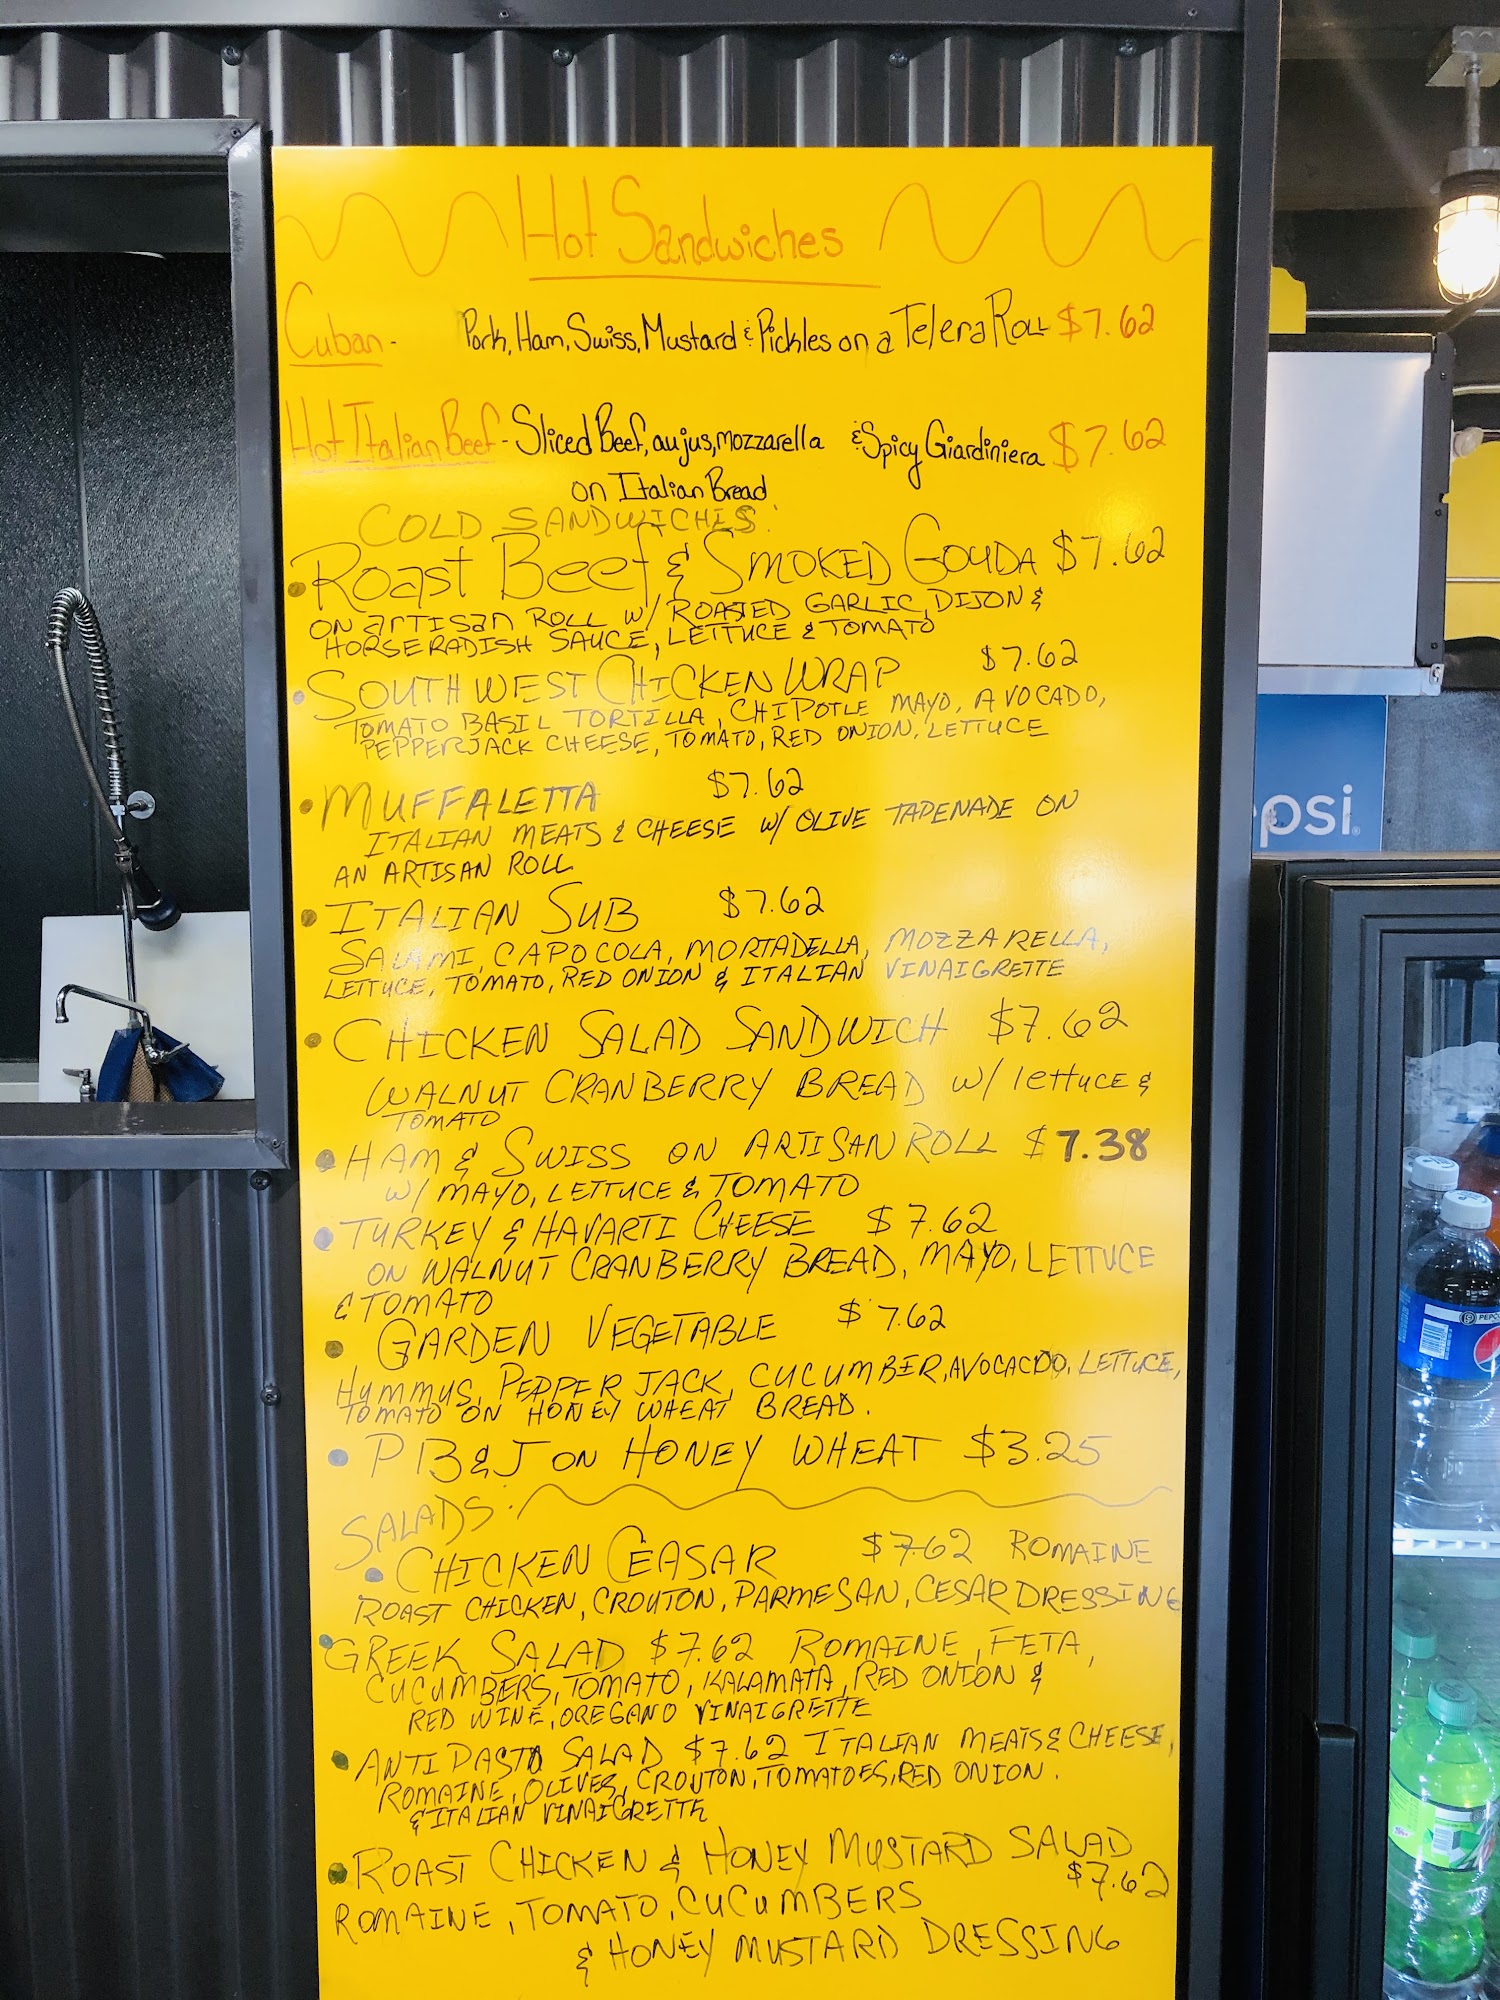 Hot Sandwiches
Cuban - Pork, Ham, Swiss, Mustard & Pickles on a Telera Roll $7.62
Hot Italian Beef - Sliced Beef, au jus, mozzarella & Spicy Giardiniera $7.62
on Italian Bread
COLD SANDWICHES:
• Roast Beef & SMOKED GOUDA $7.62
ON artisan ROLL w/ ROASTED GARLIC, DIJON &
HORSERADISH SAUCE, LETTUCE & TOMATO
• SOUTHWEST CHICKEN WRAP $7.62
TOMATO BASIL TORTILLA, CHIPOTLE MAYO, AVOCADO,
PEPPERJACK CHEESE, TOMATO, RED ONION, LETTUCE
• MUFFALETTA $7.62
ITALIAN MEATS & CHEESE W/ OLIVE TAPENADE ON
AN ARTISAN ROLL
• ITALIAN SUB $7.62
SALAMI, CAPOCOLA, MORTADELLA, MOZZARELLA,
LETTUCE, TOMATO, RED ONION & ITALIAN VINAIGRETTE
• CHICKEN SALAD SANDWICH $7.62
WALNUT CRANBERRY BREAD w/ lettuce &
TOMATO
• HAM & SWISS ON ARTISAN ROLL $7.38
W/ MAYO, LETTUCE & TOMATO
• TURKEY & HAVARTI CHEESE $7.62
ON WALNUT CRANBERRY BREAD, MAYO, LETTUCE
& TOMATO
• GARDEN VEGETABLE $7.62
HUMMUS, PEPPER JACK, CUCUMBER, AVOCACDO, LETTUCE,
TOMATO ON HONEY WHEAT BREAD.
• PB&J ON HONEY WHEAT $3.25
SALADS:
• CHICKEN CEASAR $7.62 ROMAINE
ROAST CHICKEN, CROUTON, PARMESAN, CESAR DRESSING
• GREEK SALAD $7.62 ROMAINE, FETA,
CUCUMBERS, TOMATO, KALAMATA, RED ONION &
RED WINE, OREGANO VINAIGRETTE
• ANTIPASTO SALAD $7.62 ITALIAN MEATS & CHEESE,
ROMAINE, OLIVES, CROUTON, TOMATOES, RED ONION.
& ITALIAN VINAIGRETTE
• ROAST CHICKEN & HONEY MUSTARD SALAD
$7.62
ROMAINE, TOMATO, CUCUMBERS
& HONEY MUSTARD DRESSING
psi